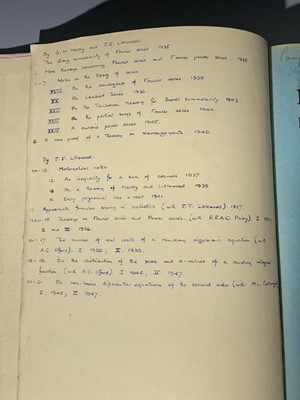 By G. H. Hardy and J.E. Littlewood.
The Strong summability of Fourier series. 1935.
More theorems concerning Fourier series and Fourier power series. 1936.
Notes on the theory of series.
XVIII On the convergence of Fourier series. 1935.
XX On Lambert Series. 1936.
XXII On the Tauberian theorem for Borel summability. 1943.
On the partial sums of Fourier series. 1944.
A curious power series. 1946.
8. A new proof of a theorem on rearrangements. 1948.
By J.E. Littlewood.
Mathematical notes.
12 An inequality for a sum of cosines. 1937.
On a theorem of Hardy and Littlewood. 1938
14 Every polynomial has a root. 1941.
Approach formulae in ballistics (with E.T. Littlewood) 1937.
Theorems on Fourier series and Power series. (with R.E.A.C. Paley) I. 1931,
II and III 1936.
The number of real roots of a random algebraic equation (with
A.C. Offord). I. 1938; II. 1939.
18-19. On the distribution of the zeros and a-values of a random integral
function. (with A.C. Offord). I 1945; II. 1947.
20-21. On non-linear differential equations of the second order (with M.L. Cartwright
I. 1945; II. 1947.